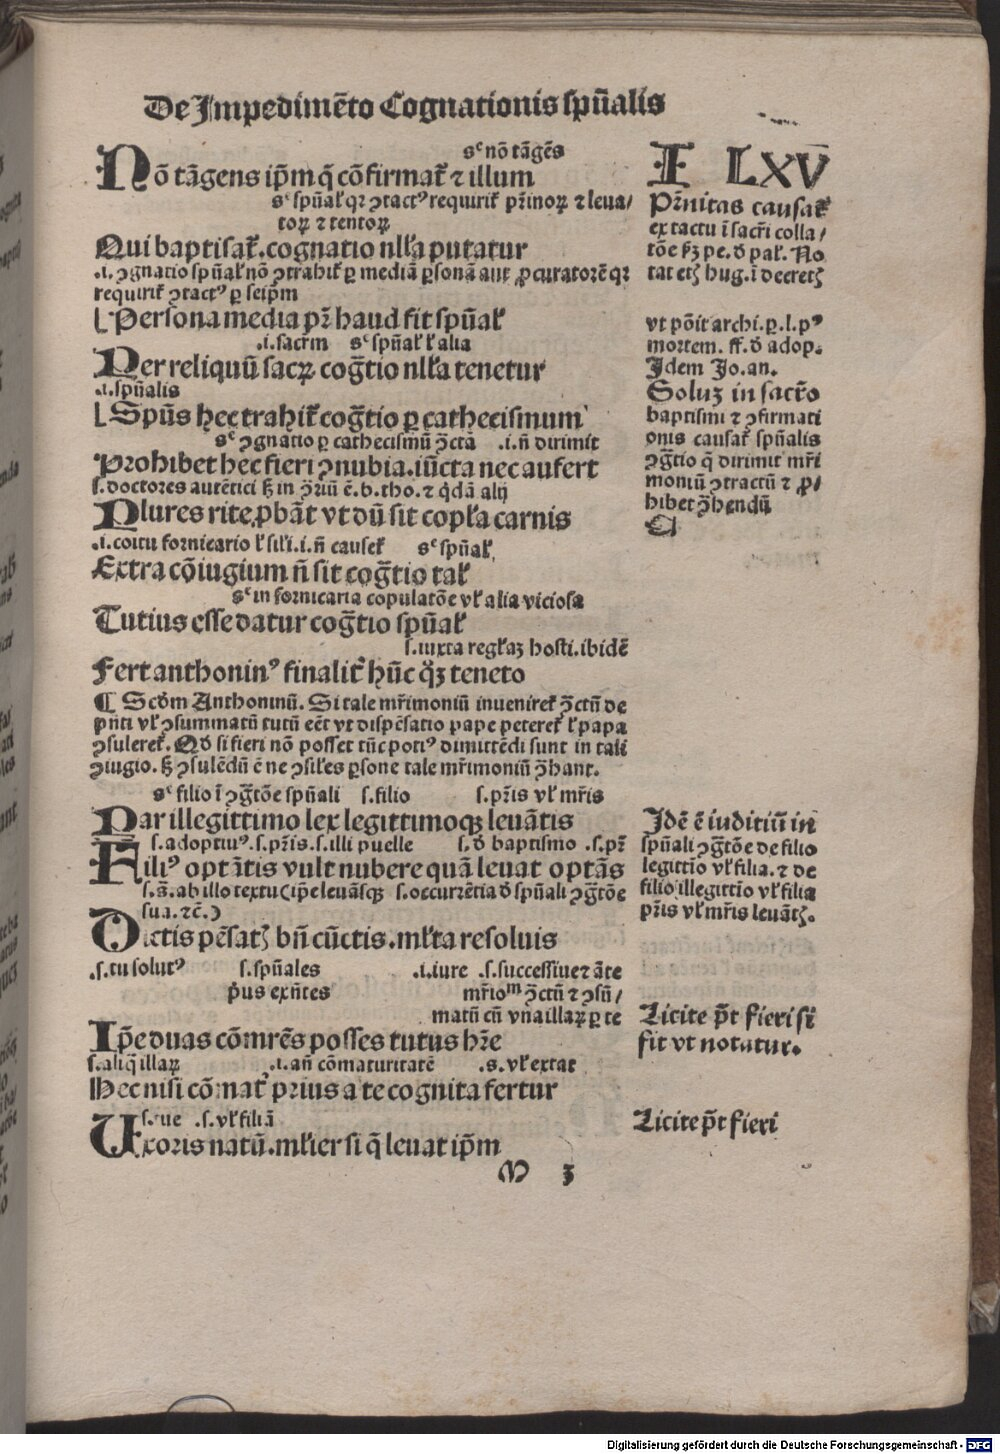 De Impedimēto Cognationis spūalis
F LXV
sᶜ nō tāgēs
Nō tāgens ip̄m q̄ cōfirmat᷑ ⁊ illum
sᶜ spūal᷑ qꝛ ꝯtactꝰ requirit᷑ pꝛīnoꝝ ⁊ leua/
toꝝ ⁊ tentoꝝ
Qui baptisat᷑. cognatio nll᷑a putatur
.i. ꝯgnatio spūal᷑ nō ꝯtrahit᷑ ꝑ mediā ꝑsonā aut ꝓcuratorē qꝛ
requirit᷑ ꝯtactꝰ ꝑ seip̄m
Persona media pꝛ̄ haud fit spūal᷑
.i. sacrm̄ sᶜ spūal᷑ l᷑ alia
Per reliquū sacꝝ cog̅tio nll᷑a tenetur
.i. spūalis
Spūs hec trahit᷑ cog̅tio ꝑ cathecismum
sᶜ ꝯgnatio ꝑ cathecismū ꝯ̄ctā .i. n̄ dirimit
Prohibet hec fieri ꝯnubia. iūcta nec aufert
s. doctores autētici ꝫ in ꝯ̄riū ē. b. tho. ⁊ q̇dā alij
Plures rite ꝓbāt vt dū sit copl᷑a carnis
.i. coitu fornicario l᷑ sil᷑i .i. n̄ causet᷑ sᶜ spūal᷑
Extra cōiugium n̄ sit cog̅tio tal᷑
sᶜ in fornicaria copulatōe vl᷑ alia viciosa
Tutius esse datur cog̅tio spūal᷑
s. iuxta regl᷑aꝫ hosti. ibidē
Fert anthoninꝰ finalit᷑ hūc q̇ꝫ teneto
¶ Scd̄m Anthoninū. Si tale mr̄imoniū inueniret᷑ ꝯ̄ctū de
pn̄ti vl᷑ ꝯsummatū tutū eēt vt dispēsatio pape peteret᷑ l᷑ papa
ꝯsuleret᷑. Qd̄ si fieri nō posset tūc potiꝰ dimittēdi sunt in tali
ꝯiugio. ꝫ ꝯsulēdū ē ne ꝯsil᷑es ꝑsone tale mr̄imoniū ꝯ̄hant.
sᶜ filio ī ꝯg̅tōe spūali s. filio s. pꝛ̄is vl᷑ mr̄is
Par illegittimo lex legittimoqꝫ leuātis
s. adoptiuꝰ. s. pꝛ̄is. s. illi puelle s. d̄ baptismo .s. pꝛ̄
Filiꝰ optātis vult nubere quā leuat optās
s. ā. ab illo textu (ip̄e leuāsqꝫ s. occurrētia d̄ spūali ꝯg̅tōe
sua. ⁊c̄.)
Dictis pēsatꝫ bn̄ cūctis. ml᷑ta resoluis
.s. tu solutꝰ s. spūales .i. iure .s. successiue ⁊ āte
pꝰus exn̄tes mr̄ioᵐ ꝯ̄ctū ⁊ ꝯsū/
matū cū vna illaꝝ ꝑ te
Ip̄e duas cōmr̄es posses tutus hr̄e
s. aliq̄ illaꝝ .i. an̄ cōmaturitatē .s. vl᷑ extat
Hec nisi cōmat᷑ prius a te cognita fertur
s. tue .s. vl᷑ filiā
Uxoris natū. ml᷑ier si q̄ leuat ip̄m
M 3
Pꝛ̄nitas causat᷑
ex tactu ī sacrī colla/
tōe
tat etꝫ hug. ī decretꝫ
vt pōit archi. ꝑ. l. pꝰ
mortem. ff. d̄ adop.
Idem Jo. an.
Soluꝫ in sacr̄o
baptismi ⁊ ꝯfirmati
onis causat᷑ spūalis
ꝯg̅tio q̄ dirimit mr̄i
moniū ꝯtractū ⁊ ꝓ/
hibet ꝯ̄hendū
Idē ē iuditiū in
spūali ꝯg̅tōe de filio
legittīo vl᷑ filia. ⁊ de
filio illegittīo vl᷑ filia
pꝛ̄is vl᷑ mr̄is leuātꝫ.
Licite pt̄ fieri si
fit vt notatur.
Licite pt̄ fieri
Digitalisierung gefördert durch die Deutsche Forschungsgemeinschaft - DFG